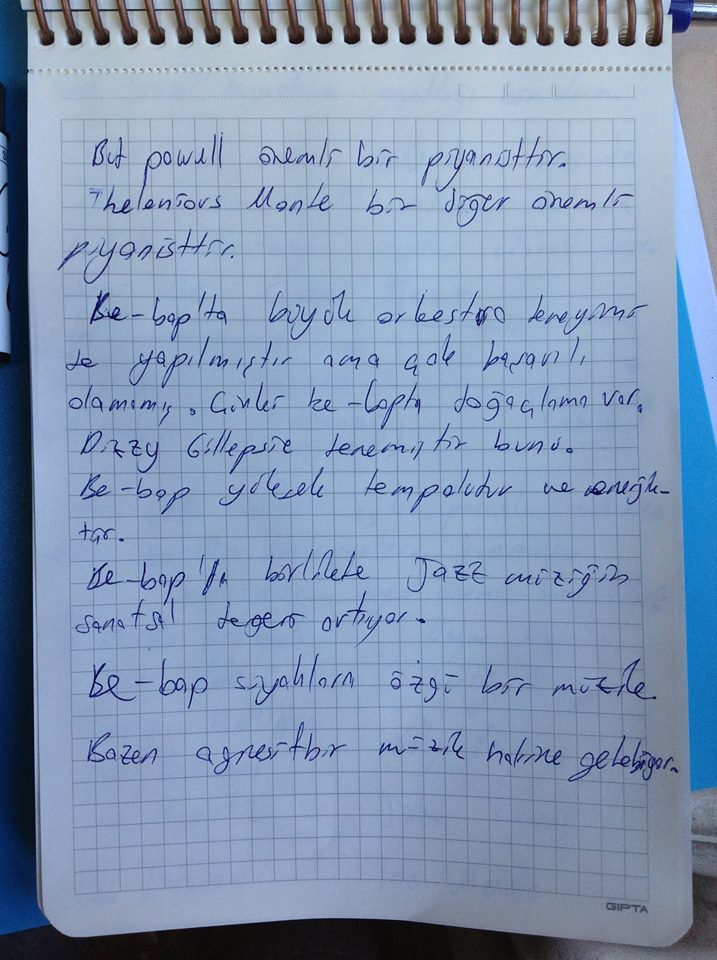 But powell önemli bir piyanisttir.
Thelenious Monte bir diğer önemli
piyanisttir.
Be-bap'ta büyük orkestra deneyimi
de yapılmıştır ama çok başarılı
olamamış. Çünkü be-bopta doğaçlama var.
Dizzy Gillepsie denemiştir bunu.
Be-bap yüksek tempoludur ve energik-
tir.
Be-bap'la birlikte Jazz müziğin
sanatsal değeri artıyor.
Be-bap siyahlara özgü bir müzik.
Bazen agresif bir müzik haline gelebiliyor.
GIPTA